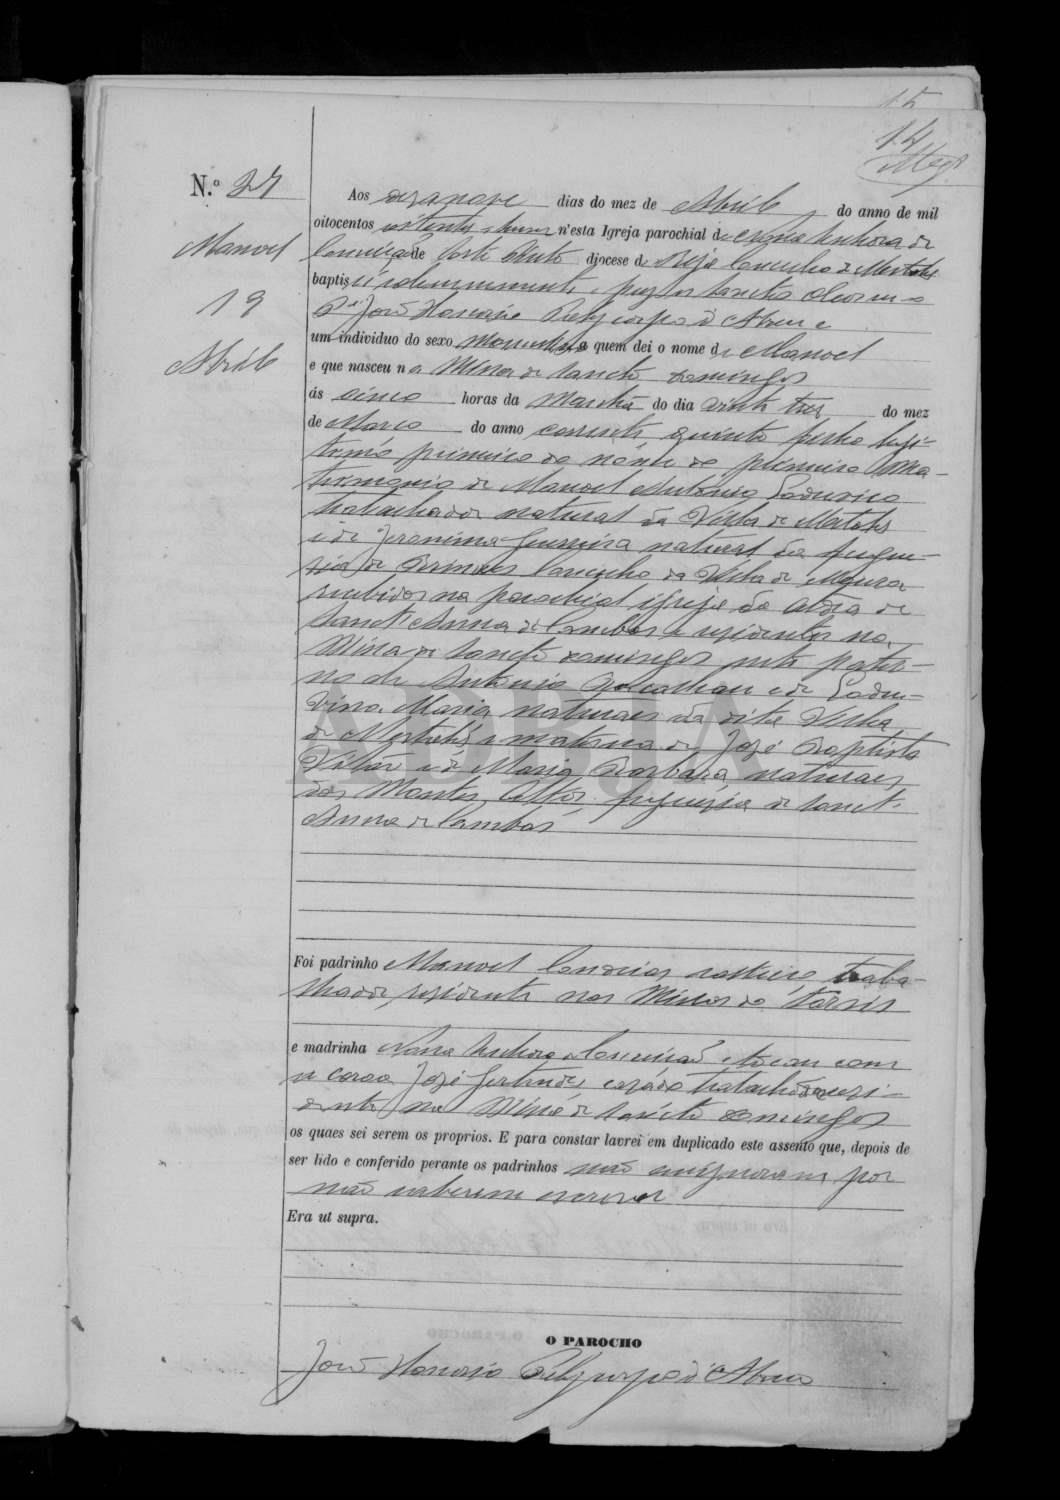 15
14
N.º 27
Manoel
19
Abril
Aos desanove dias do mez de Abril do anno de mil
oitocentos oitenta e hum n'esta Igreja parochial de Nossa Senhora da
Conceição de Corte Pinto diocese de Beja Concelho de Mertola
baptisei solemnemente e puz os Sanctos Oleos
João Honorio Policarpo d'Abreu
um individuo do sexo Masculino a quem dei o nome de Manoel
e que nasceu na Mina de Sancto Domingos
ás cinco horas da Manhã do dia vinte tres do mez
de Março do anno corrente, quinto filho legi-
timo primeiro do nome do primeiro Ma-
trimonio de Manoel Antonio
trabalhador natural da Villa de Mertola
e de Jeronima Guerreira natural da fregue-
sia de Concelho da Villa de Moura
recebidos na parochial igreja da Aldea de
Sanct'Anna de Cambas e residentes na
Mina de Sancto Domingos neto pater-
no de Antonio e de Ludu-
vina Maria naturaes da dita Villa
de Mertola, e materna de José Baptista
e de Maria Barbara, naturaes
dos Montes Altos, freguesia de Sanct'
Anna de Cambas
ADBJA
Foi padrinho Manoel solteiro, traba-
lhador, residente nas Minas de Tarsis
e madrinha Nossa Senhora da Conceição e tocou com
a coroa José Gertrudes casado trabalhador resi-
dente na Mina de Sancto Domingos
os quaes sei serem os proprios. E para constar lavrei em duplicado este assento que, depois de
ser lido e conferido perante os padrinhos não assignaram por
não saberem escrever
Era ut supra.
O PAROCHO
João Honorio Policarpo d'Abreu